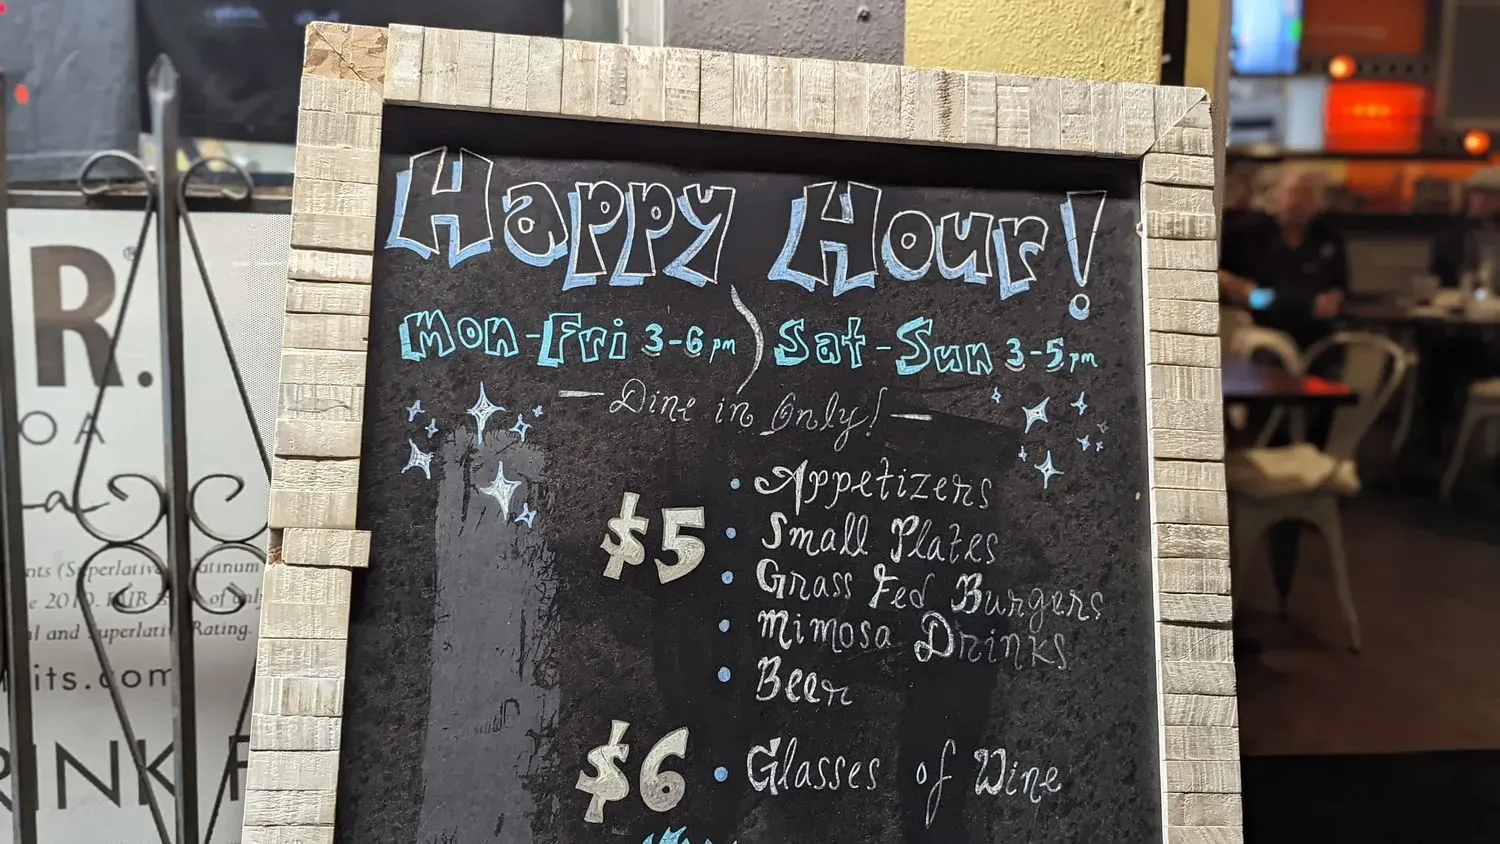 Happy Hour!
Mon-Fri 3-6pm ) Sat-Sun 3-5pm
— Dine in Only! —
$5
• Appetizers
• Small Plates
• Grass Fed Burgers
• Mimosa Drinks
• Beer
$6 • Glasses of Wine
R.
OA
nts (Superlative
atinum
e 201
of only
l and
uperlati
Rating.
its.com
RINK